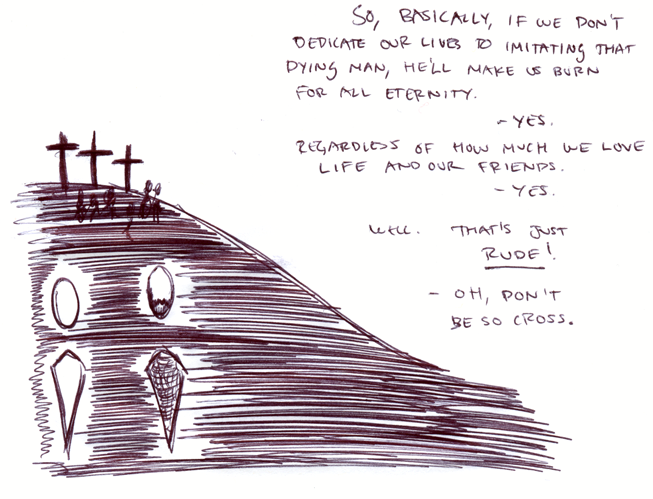 SO, BASICALLY, IF WE DON'T
DEDICATE OUR LIVES TO IMITATING THAT
DYING MAN, HE'LL MAKE US BURN
FOR ALL ETERNITY.
- YES.
REGARDLESS OF HOW MUCH WE LOVE
LIFE AND OUR FRIENDS.
- YES.
WELL. THAT'S JUST
RUDE!
- OH, DON'T
BE SO CROSS.